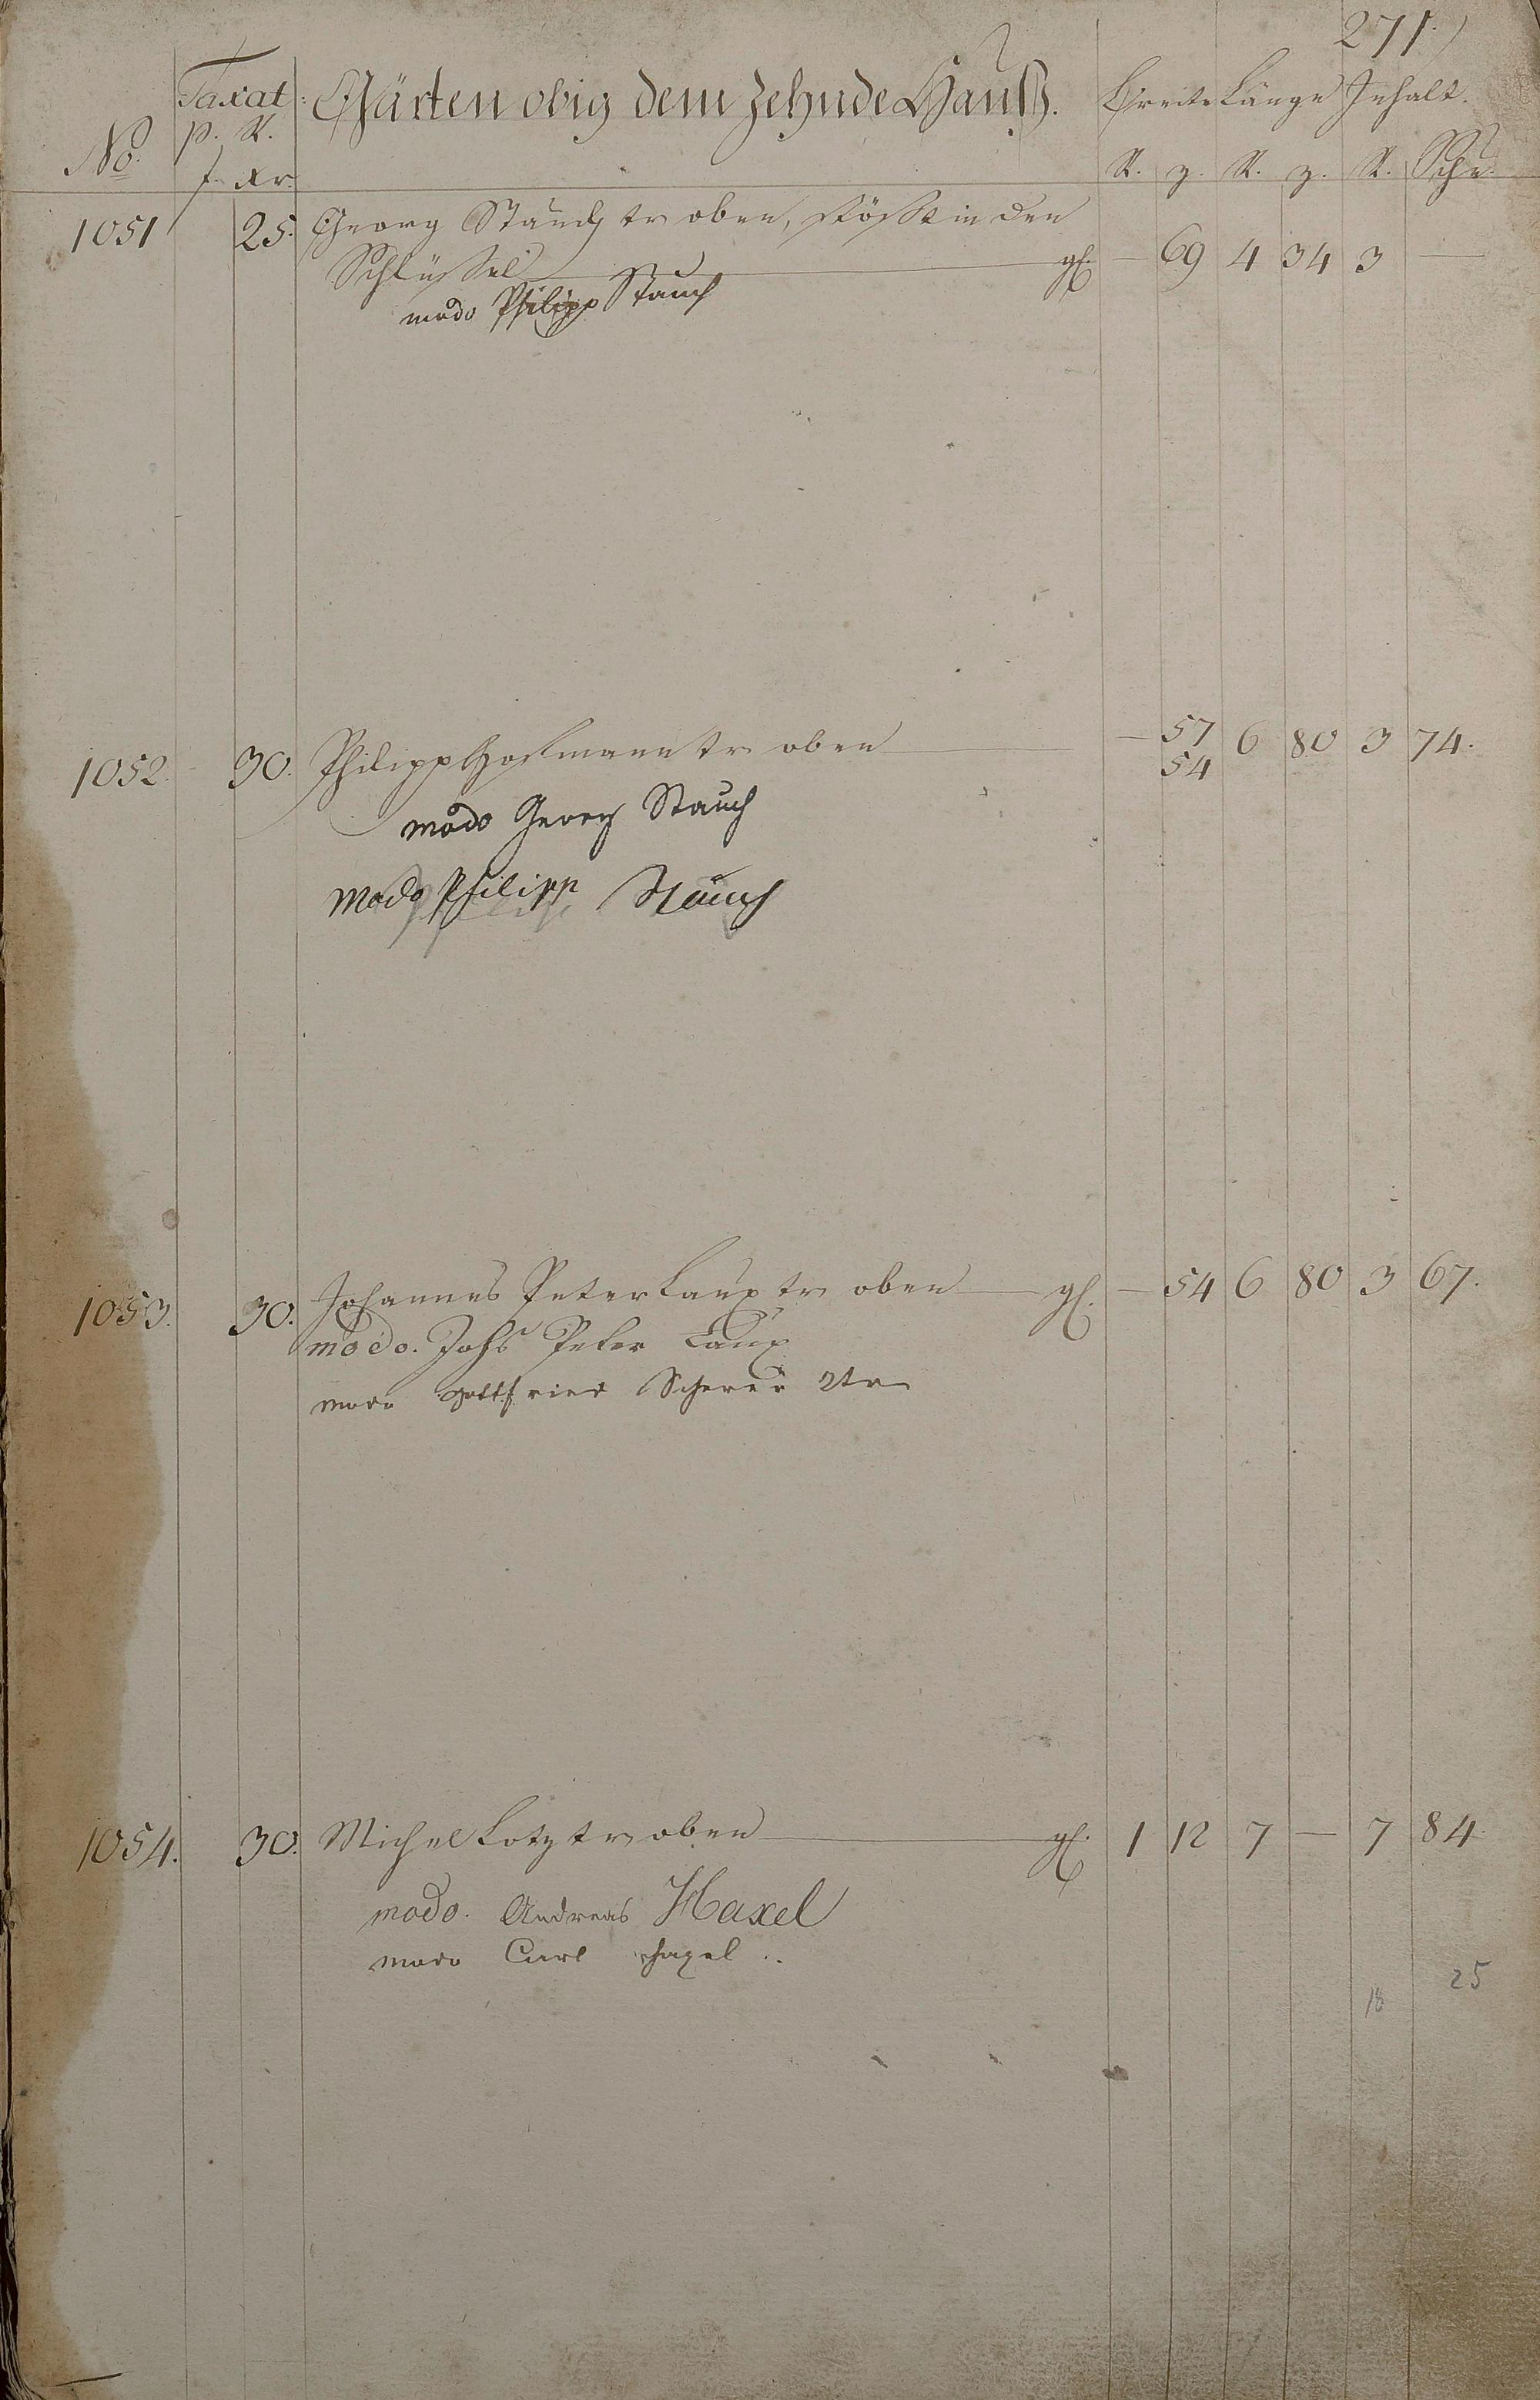 271.
No. Taxat: p. R. f. xr. Gärten obig dem Zehnde Hauß. Breite Länge Inhalt.
R. z. R. z. R. Schu.
1051 25. Georg Stauch tr oben, stößt in den
Schlüßel gl. — 69 4 34 3 —
modo Philipp Stauch
1052. 30. Philipp Hofmann tr oben — 57 6 80 3 74.
54
modo Georg Stauch
modo Philipp Stauch
1053. 30. Johannes Peter Laux tr oben gl. — 54 6 80 3 67.
modo. Johs Peter Laux
modo Gottfried Scherer 2tr
1054. 30. Michel Lotz tr oben gl. 1 12 7 — 7 84.
modo. Andreas Haxel
modo Carl Haxel
18 25